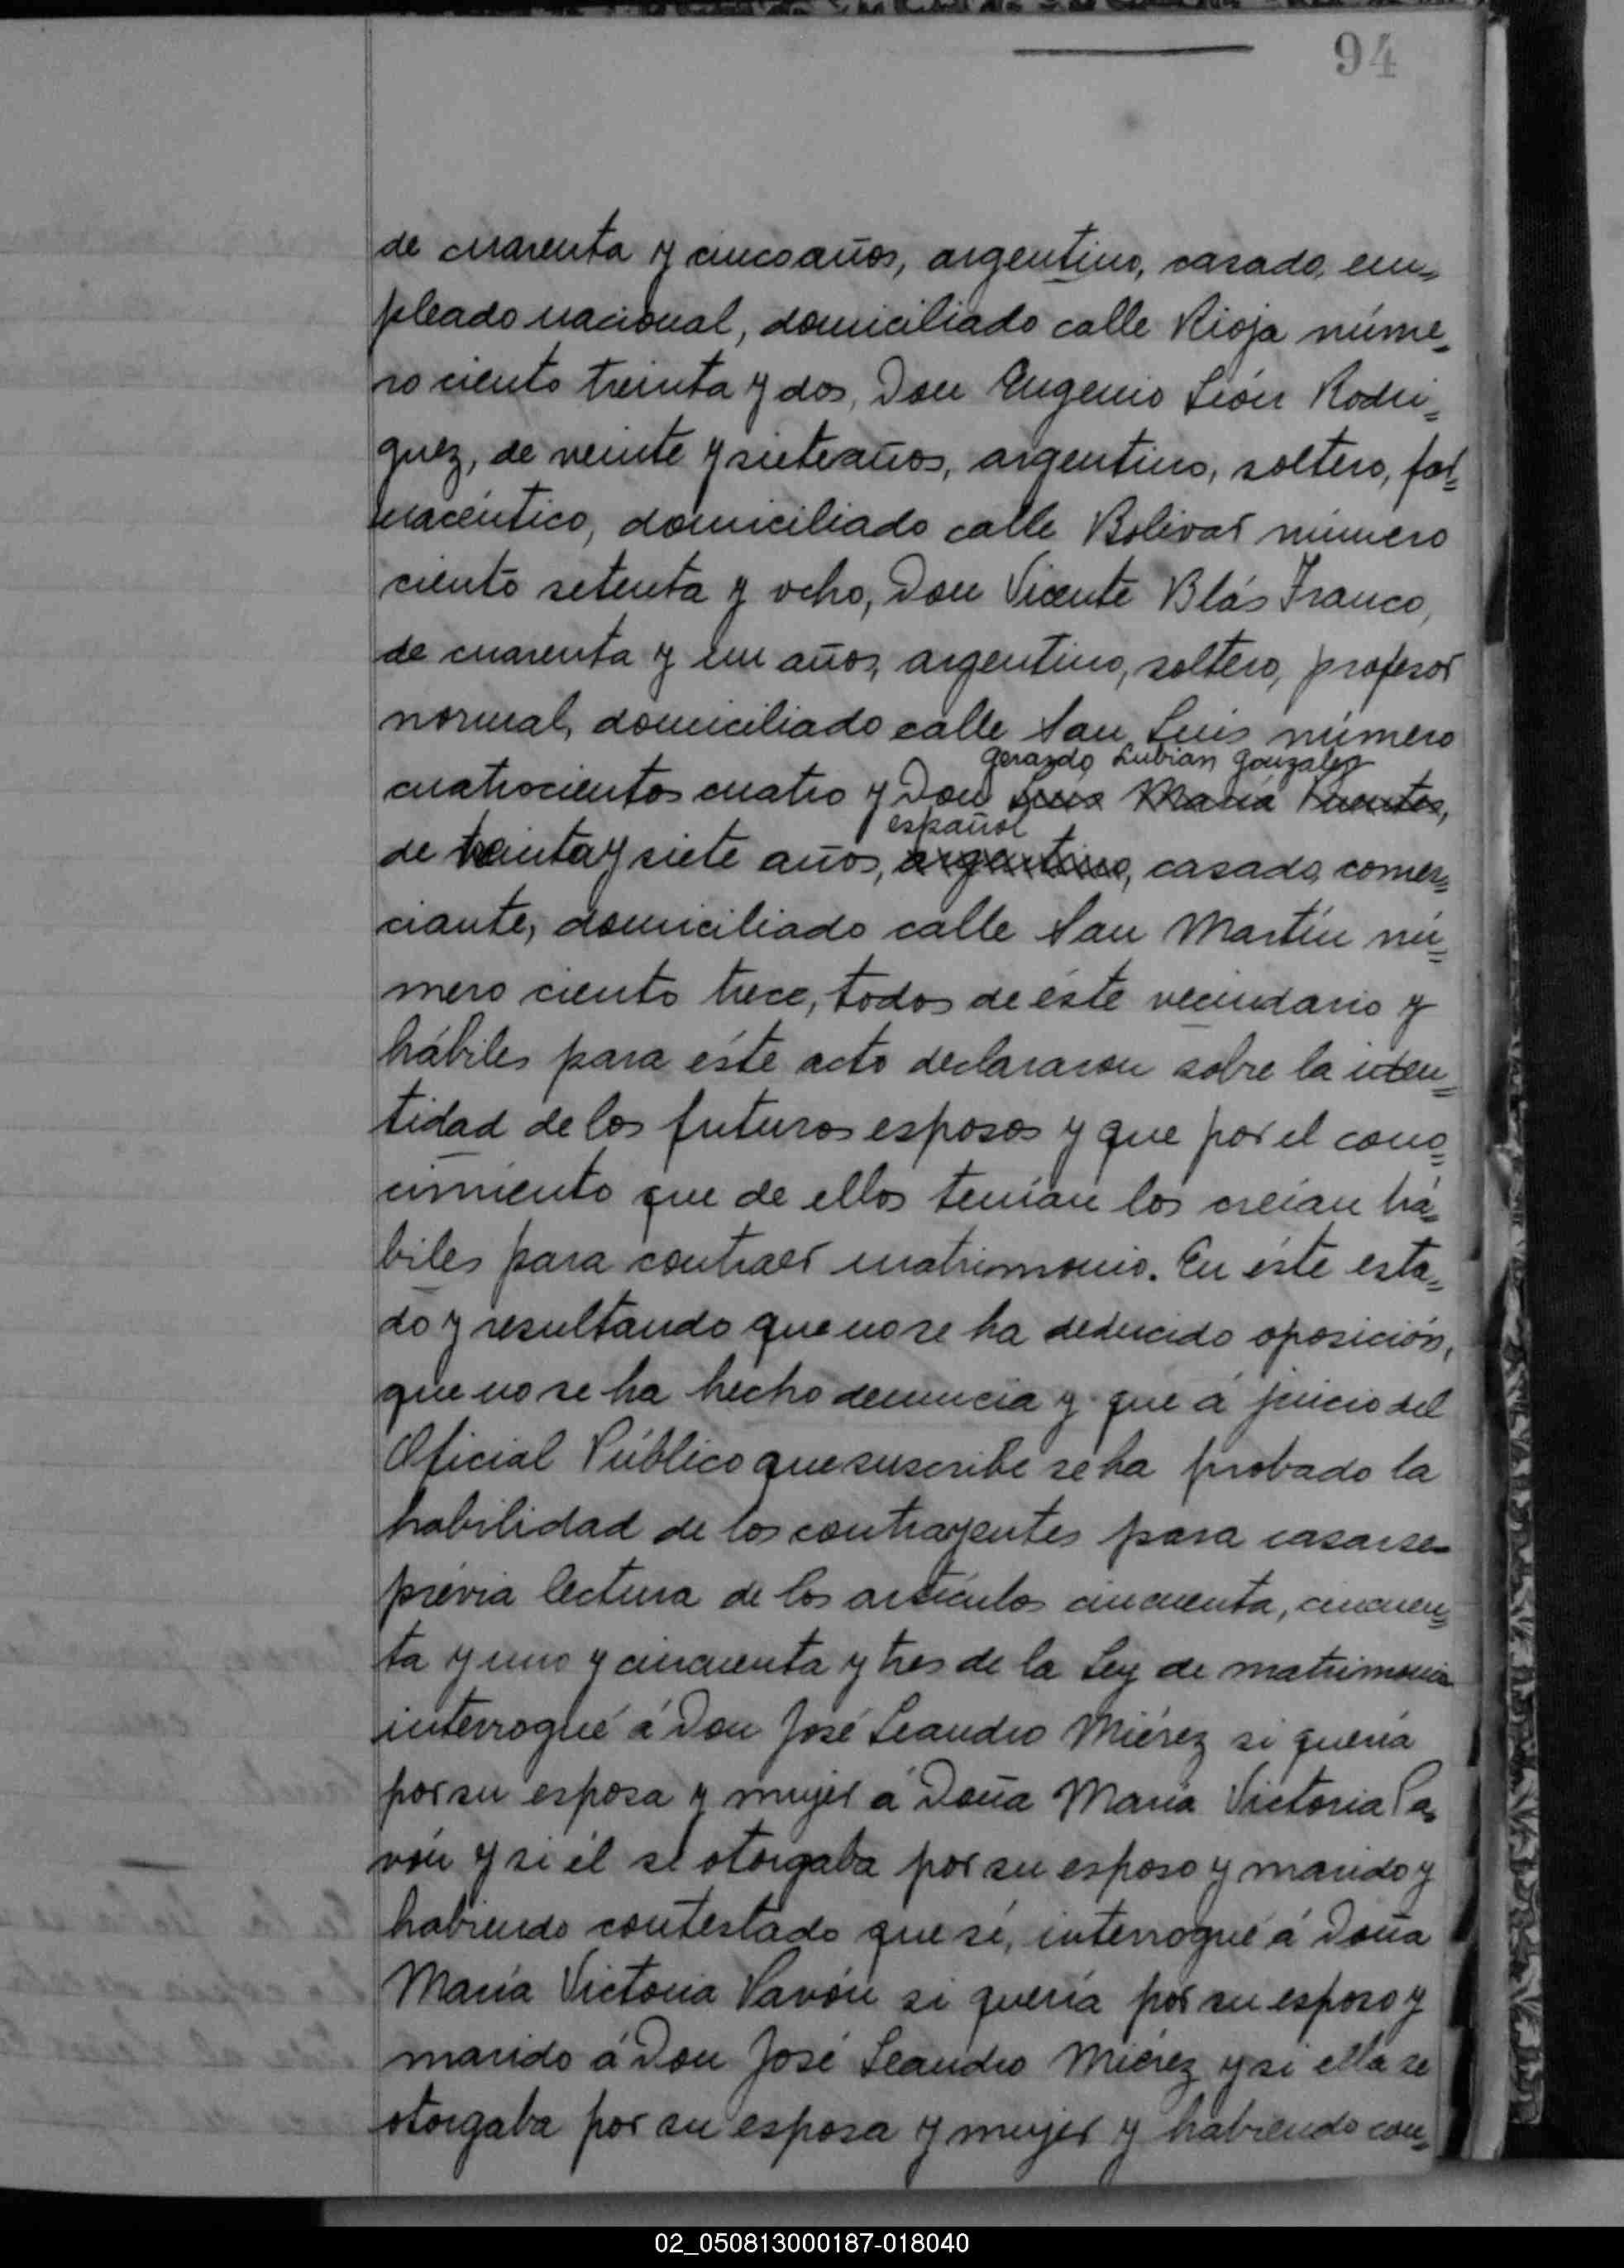 94
de cuarenta y cinco años, argentino, casado, em=
pleado nacional, domiciliado calle Rioja núme=
ro ciento treinta y dos, Don Eugenio León Rodri=
guez, de veinte y siete años, argentino, soltero, far=
macéutico, domiciliado calle Bolivar número
ciento setenta y ocho, Don Vicente Blás Franco,
de cuarenta y un años, argentino, soltero, profesor
normal, domiciliado calle San Luis número
Gerardo Lubian Gonzalez
cuatrocientos cuatro y Don Luis Maria Puentes,
español
de treinta y siete años, argentino, casado, comer=
ciante, domiciliado calle San Martín nú=
mero ciento trece, todos de éste vecindario y
hábiles para éste acto declararon sobre la iden=
tidad de los futuros esposos y que por el cono=
cimiento que de ellos tenían los creían há=
biles para contraer matrimonio. En éste esta=
do y resultando que no se ha deducido oposición,
que no se ha hecho denuncia y que á juicio del
Oficial Público que suscribe se ha probado la
habilidad de los contrayentes para casarse
prévia lectura de los artículos cincuenta, cincuen=
ta y uno y cincuenta y tres de la Ley de matrimonio
interrogué á Don José Leandro Miérez si quería
por su esposa y mujer á Doña María Victoria Pa=
vón y si él se otorgaba por su esposo y marido y
habiendo contestado que sí, interrogué á Doña
María Victoria Pavón si quería por su esposo y
marido á Don José Leandro Miérez y si ella se
otorgaba por su esposa y mujer y habiendo con=
02_050813000187-018040